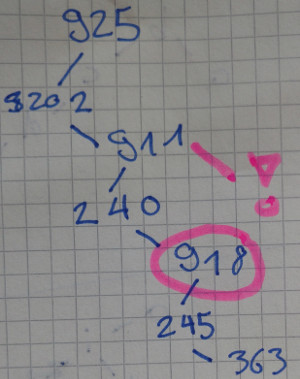 925
20 2
911 !
240
918
245
363